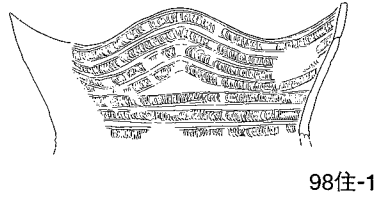 98住-1